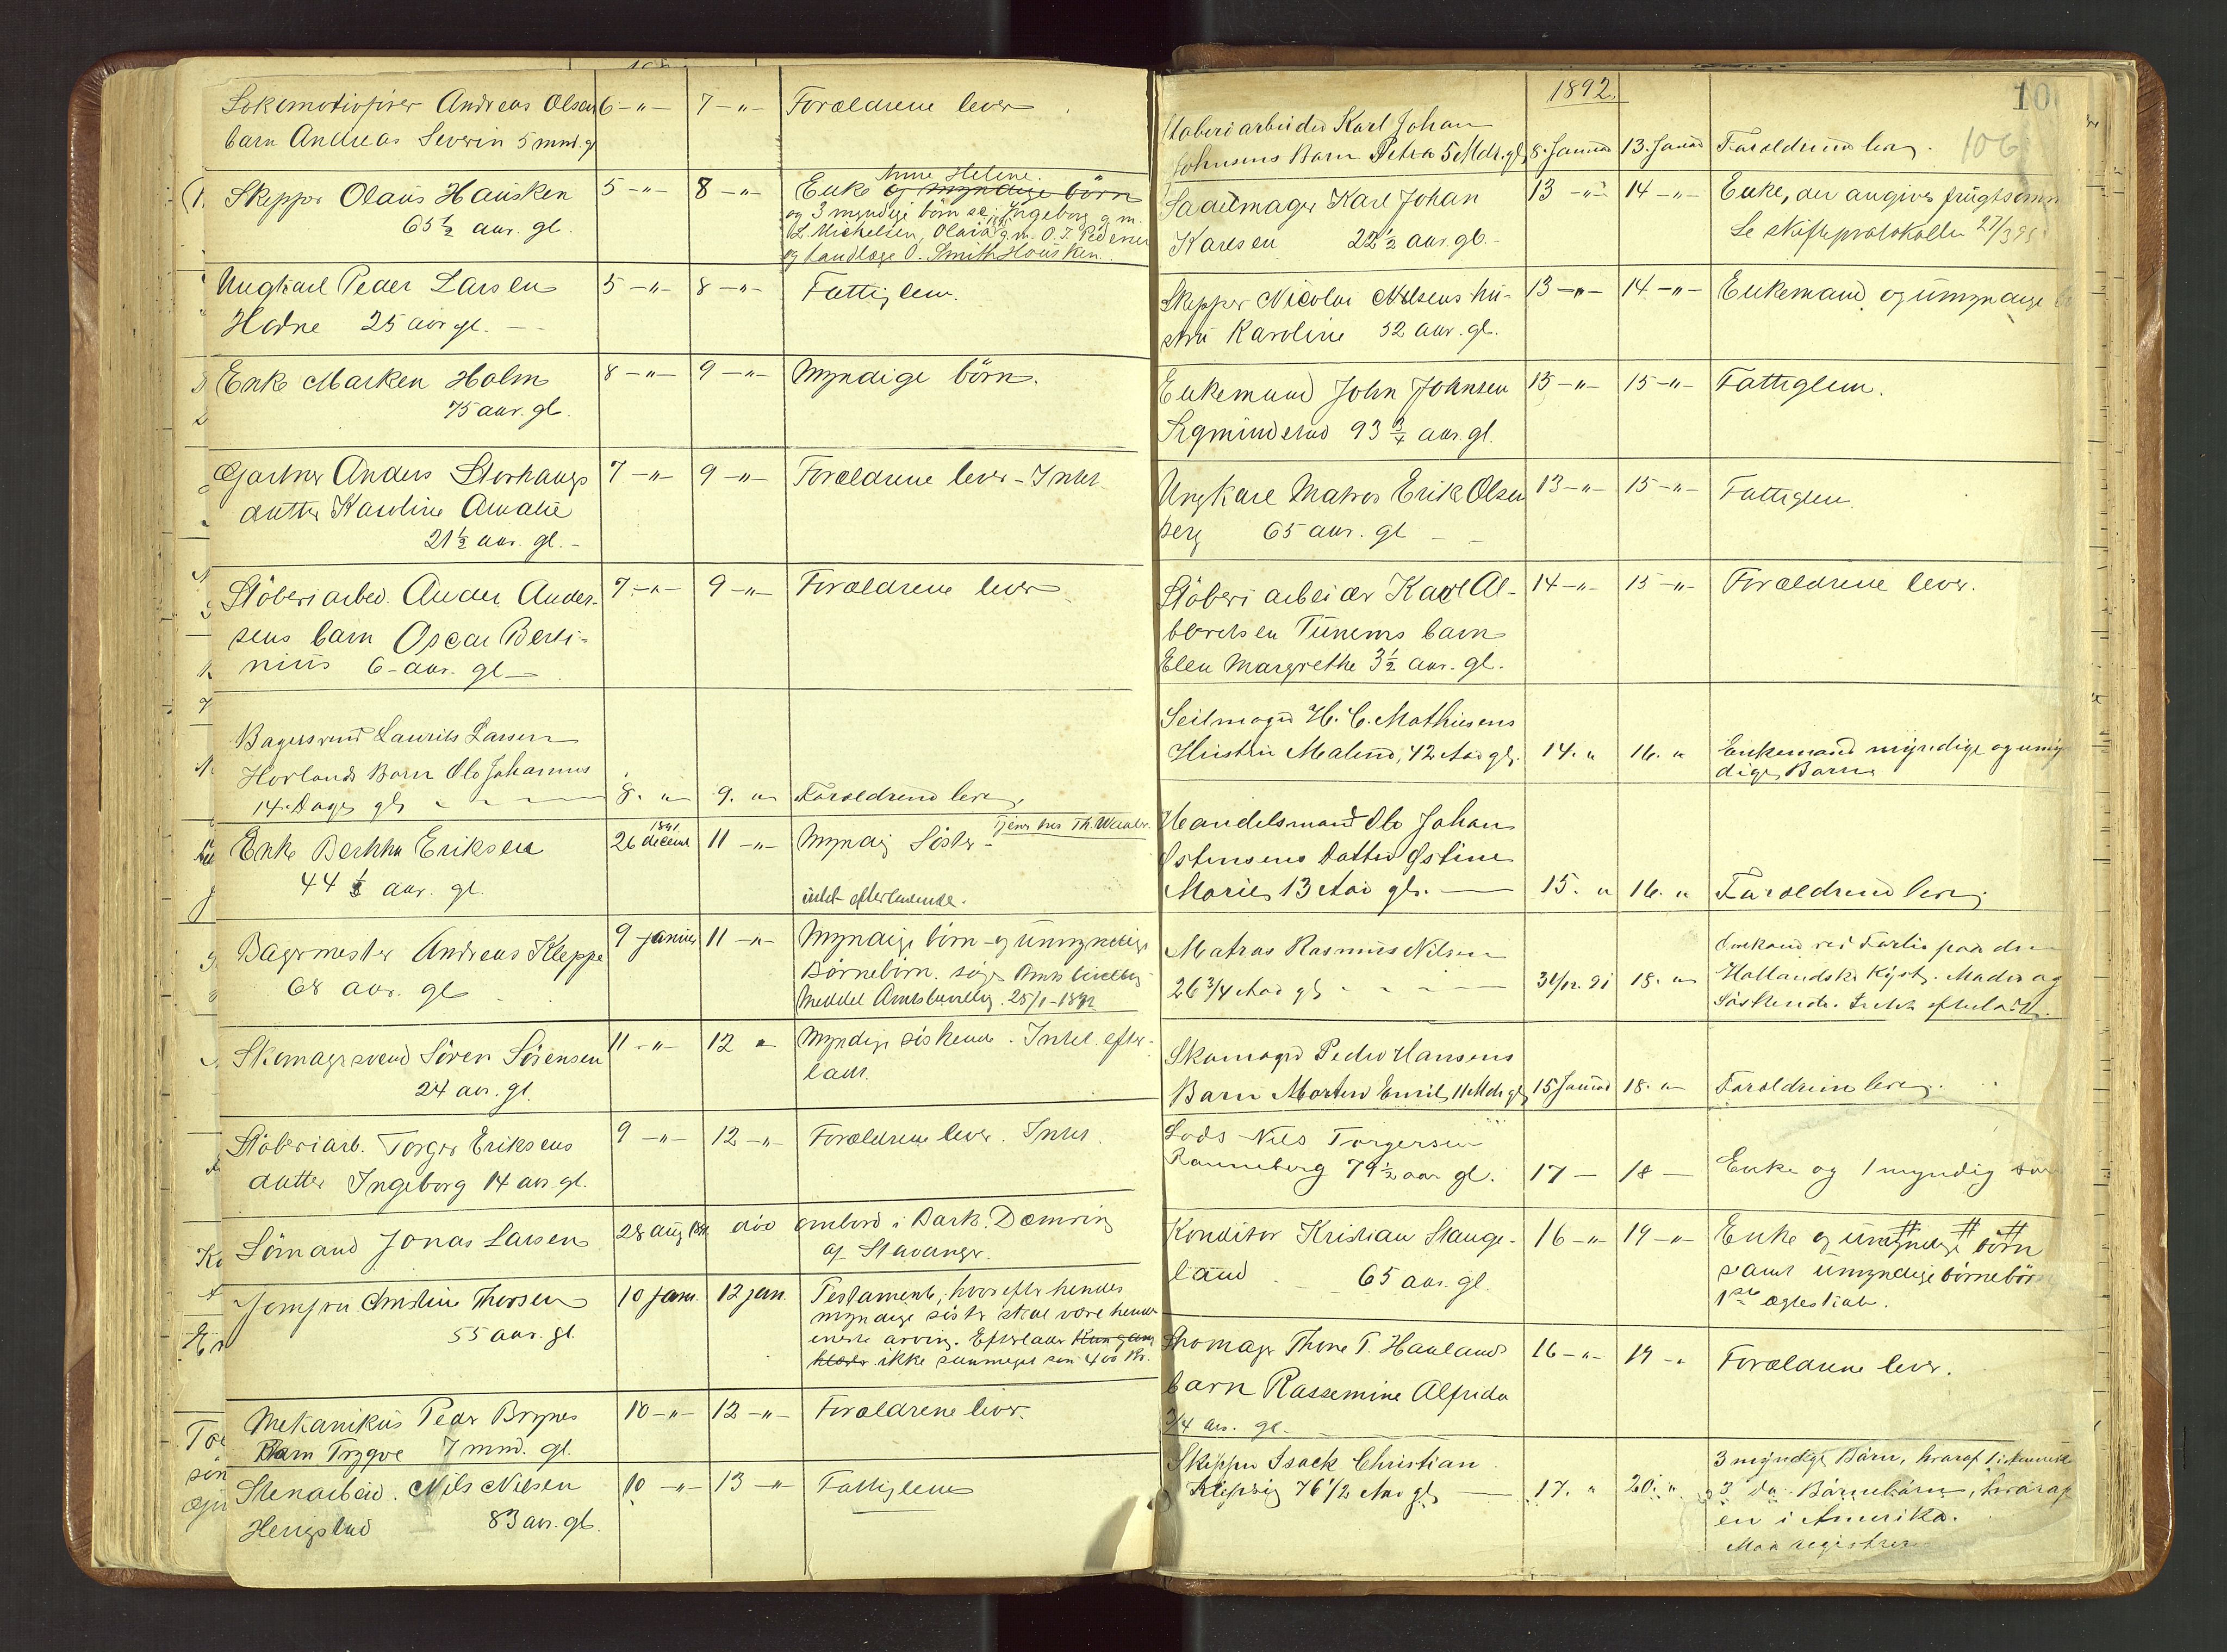 Lokomotivfører Andreas Olsens 6 -„- 7 -„- Forældrene lever
barn Andreas Severin 5 mnd. gl
Skipper Olaus Hausken 5 -„- 8 -„- Enke Anne Helene og myndige börn
65½ aar. gl. og 3 myndige börn se. Ingeborg g. m.
L. Michelsen, Olava g.m. O. T. Pedersen
og tandlæge O. Smith Housken.
Ungkarl Peder Larsen 5 -„- 8 -„- Fattiglem.
Hodne 25 aar gl.
Enke Marken Holm 8 -„- 9 -„- Myndige börn.
75 aar. gl.
Gartner Anders Storhaugs 7 -„- 9 -„- Forældrene lever - Intet
datter Karoline Amalie
21½ aar. gl. -
Støberiarbeid. Ander Ander- 7 -„- 9 -„- Forældrene lever
sens barn Oscar Berti-
nius 6 - aar. gl
Bagersvend Laurits Larsen
Horlands Barn Ole Johannes
14 Dage gl 8. „ 9. „ Forældrene lever
Enke Berthe Eriksen 26 decemb 1891 11 -„- Myndig Söster - Tjener hos Th.
44½ aar. gl. intet efterladende.
Bagermester Andreas Kleppe 9 januar 11 -„- Myndige börn - og umyndige
68 aar. gl Börnebörn. söger Amts bevilling
Meddelt Amtsbevilling. 25/1 - 1892
Skomagersvend Sören Sörensen 11 -„- 12 „ Myndige siskende. Intet efter-
24 aar. gl. ladt.
Støberiarb. Torger Eriksens 9 -„- 12 -„- Forældrene lever. Intet.
datter Ingeborg 14 aar. gl.
Sömand Jonas Larsen 28 aug 1891 död ombord i Bark. Dæmring
af Stavanger.
Jomfru Christine Thorsen 10 janu. 12 jan. Testamente, hvorefter hendes
55 aar. gl. myndige sister skal være hendes
eneste arving. Efterlader kun gang
klæder ikke saameget som 400 Kr.
Mekanikus Peder Brynes 10 -„- 12 -„- Forældrene lever.
Barn Trygve 7 mnd. gl.
Stenarbeid. Nils Nilsen 10 -„- 13 -„- Fattiglem
Hengstad 83 aar. gl.
1892.
10
106
Støberiarbeider Karl Johan
Johnsens Barn Petra 5 Mdr. gl 8. Januar 13. Januar Forældrene lever.
Sadelmager Karl Johan 13 -„- 14 -„- Enke, der angives frugtsom
Karlsen 22½ aar. gl. - Se skifteprotokollen
Skipper Nicolai Nilsens hu- 13 -„- 14 -„- Enkemand og umyndige
stru Karoline 52 aar. gl.
Enkemand John Johnsen 13 -„- 15 -„- Fattiglem.
Sigmundstad 93¾ aar. gl.
Ungkarl Matros Erik Olsen 13 -„- 15 -„- Fattiglem.
Berg 65 aar. gl
Støberiarbeider Karl Al- 14 -„- 15 -„- Forældrene lever.
bertsen Tunems barn
Elen Margrethe 3½ aar. gl.
Seilmager H. C. Mathiesens
Hustru Malene, 42 Aar gl. 14. „ 16. „ Enkemand myndige og umyn
dige Børn
Handelsmand Ole Johan
Østensens Datter Østine
Marie, 13 Aar gl. 15. „ 16. „ Forældrene lever
Matros Rasmus Nilsen Omkom ved Forlis paa den
26 3/4 Aar gl 31/12. 91 18. „ Hollandske Kyst. Moder og
Søskende. Intet efterladt.
Skomager Peder Hansens
Barn Morten Emil, 11 Mdr gl 15 Januar 18. „ Forældrene lever.
Lods Nils Torgersen
Ranneberg 79½ aar gl. 17 - 18 - Enke og 1 myndig søn
Konditor Kristian Stange- 16 -„- 19 -„- Enke og umyndige börn
land 65 aar. gl. samt umyndige börnebörn
1ste ægteskab.
Skomager Thore T. Haaland 16 -„- 19 -„ Forældrene lever.
barn Rassemine Alfrida
3/4 aar. gl.
Skipper Isack Christian 3 myndige Børn, hvoraf
Kleppsig 76 1/2 Aar gl 17. „ 20. „ 3 do. Børnebørn, hvoraf
en i Amerika.
Maa registreres